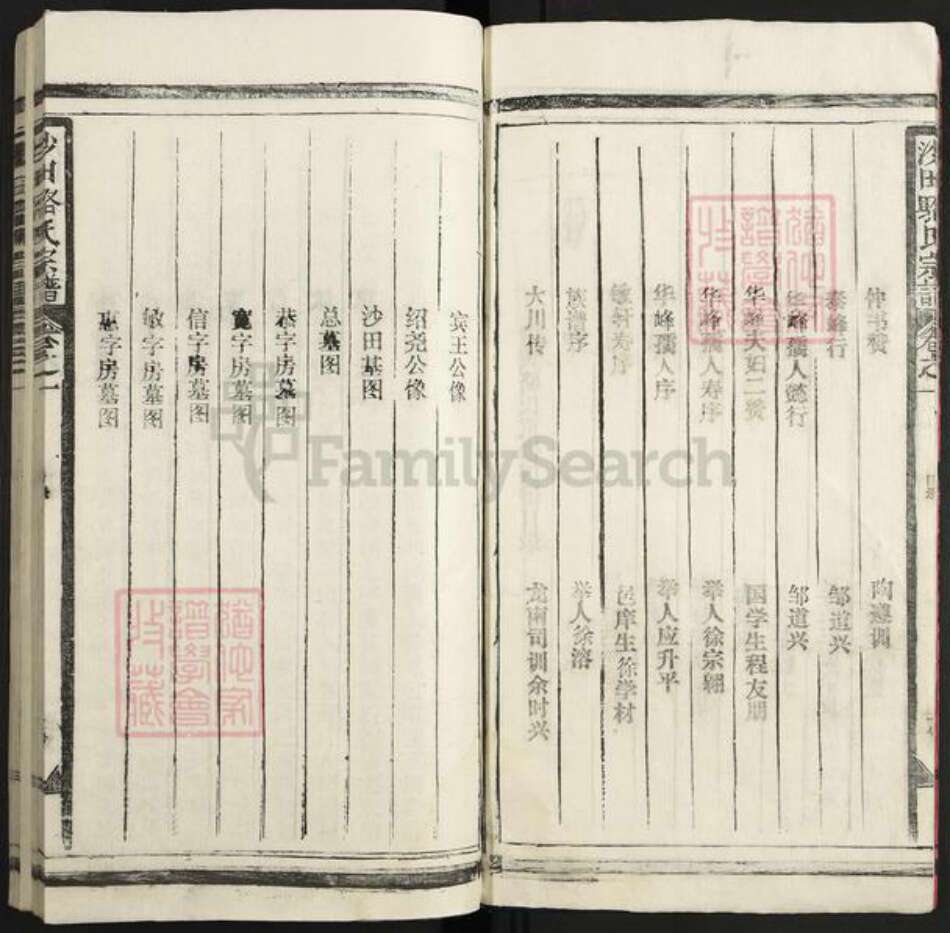 沙田骆氏宗谱
卷之一
目录
仲韦赞
陶遵训
泰峰行
邹道兴
华峰孺人懿行
邹道兴
华峰夫妇二赞
国学生程友朋
华峰孺人寿序
举人徐宗翱
华峰孺人序
举人应升平
敏轩寿序
邑庠生徐学材
族谱序
举人徐溶
大川传
肃南司训余时兴
宾王公像
绍尧公像
沙田基图
总墓图
恭字房墓图
宽字房墓图
信字房墓图
敏字房墓图
惠字房墓图
沙田骆氏宗谱
卷之一
FamilySearch